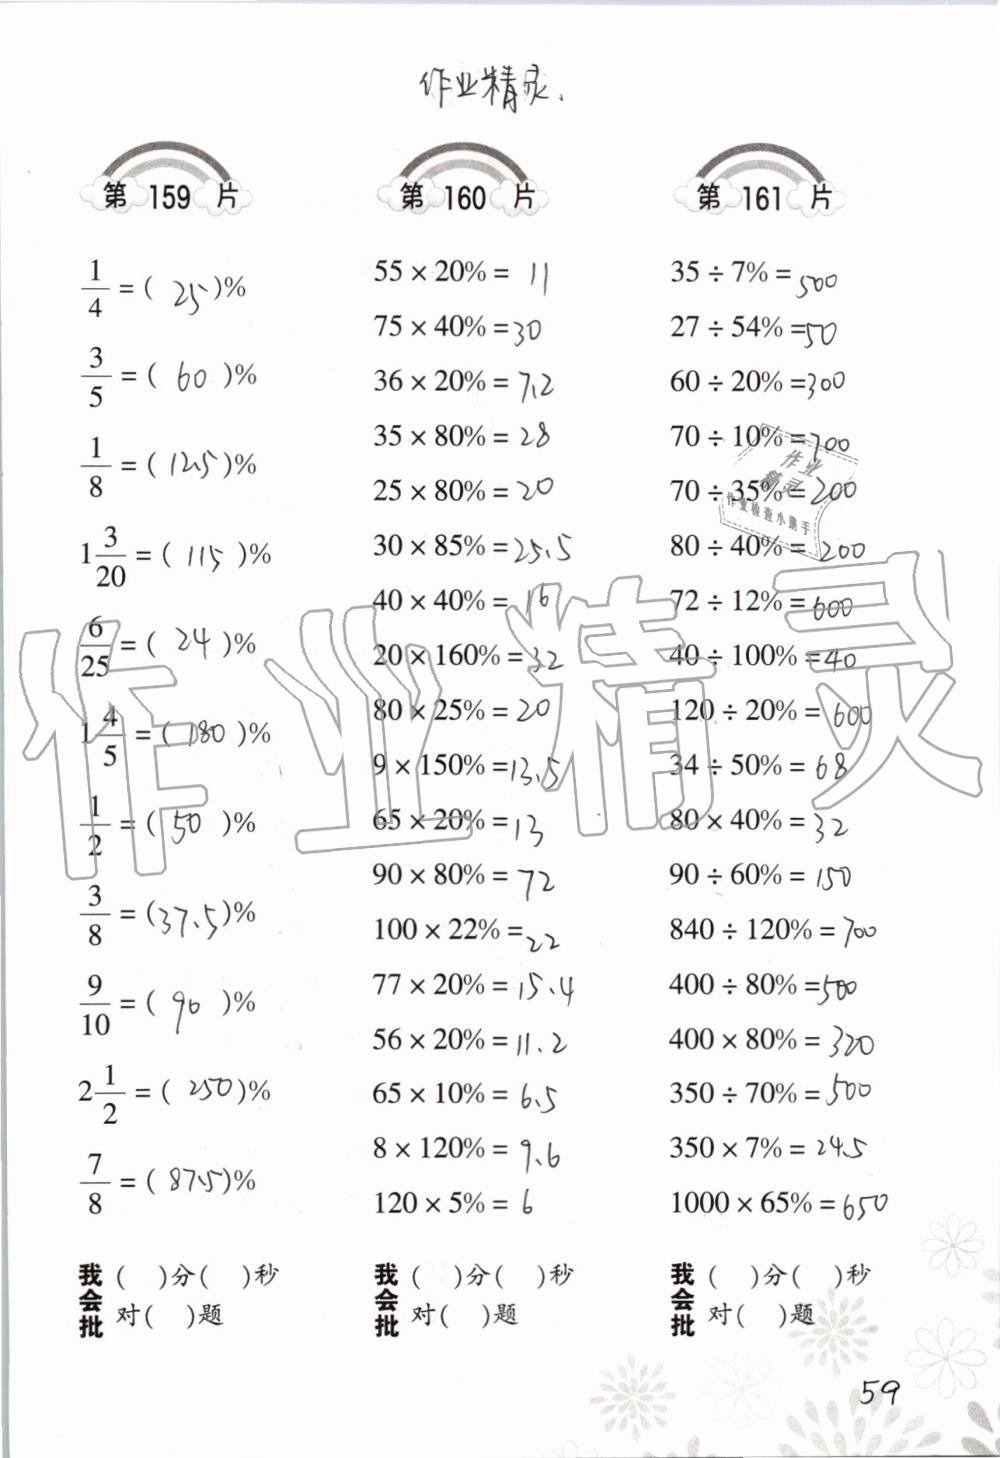 作业精灵、
第 159 片
1/4 = ( 25 )%
3/5 = ( 60 )%
1/8 = ( 12.5 )%
1 3/20 = ( 115 )%
6/25 = ( 24 )%
1 4/5 = ( 180 )%
1/2 = ( 50 )%
3/8 = ( 37.5 )%
9/10 = ( 90 )%
2 1/2 = ( 250 )%
7/8 = ( 87.5 )%
我会批
( )分( )秒
对( )题
第 160 片
55 × 20% = 11
75 × 40% = 30
36 × 20% = 7.2
35 × 80% = 28
25 × 80% = 20
30 × 85% = 25.5
40 × 40% = 16
20 × 160% = 32
80 × 25% = 20
9 × 150% = 13.5
65 × 20% = 13
90 × 80% = 72
100 × 22% = 22
77 × 20% = 15.4
56 × 20% = 11.2
65 × 10% = 6.5
8 × 120% = 9.6
120 × 5% = 6
我会批
( )分( )秒
对( )题
第 161 片
35 ÷ 7% = 500
27 ÷ 54% = 50
60 ÷ 20% = 300
70 ÷ 10% = 700
70 ÷ 35% = 200
80 ÷ 40% = 200
72 ÷ 12% = 600
40 ÷ 100% = 40
120 ÷ 20% = 600
34 ÷ 50% = 68
80 × 40% = 32
90 ÷ 60% = 150
840 ÷ 120% = 700
400 ÷ 80% = 500
400 × 80% = 320
350 ÷ 70% = 500
350 × 7% = 24.5
1000 × 65% = 650
我会批
( )分( )秒
对( )题
作业
精灵
作业检查小助手
作业精灵
59